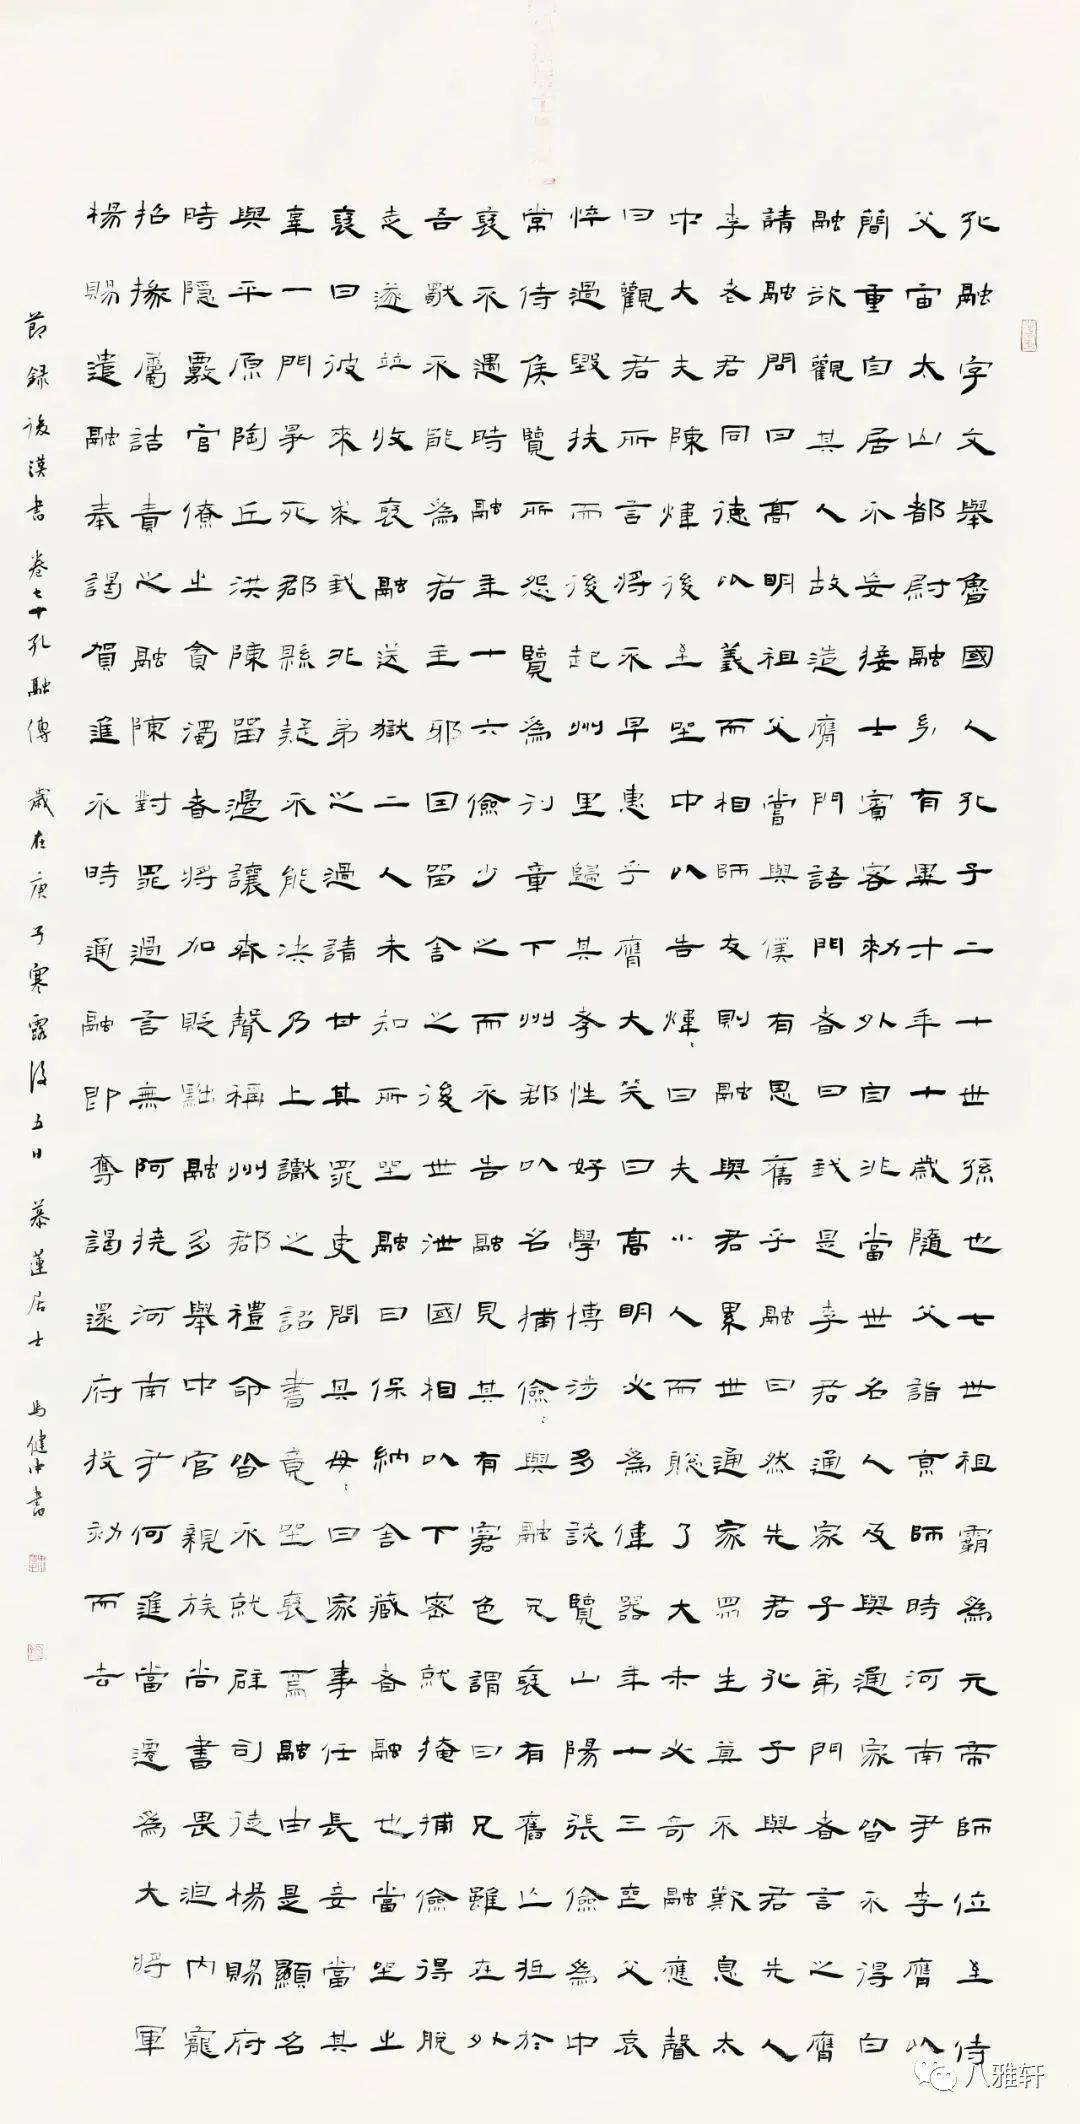 孔融字文舉魯國人孔子二十世孫也七世祖霸為元帝師位至侍
父宙太山都尉融幼有異才年十歲隨父詣京師時河南尹李膺以
簡重自居不妄接士賓客敕外自非當世名人及與通家皆不得白
融欲觀其人故造膺門語門者曰我是李君通家子弟門者言之膺
請融問曰高明祖父嘗與僕有恩舊乎融曰然先君孔子與君先人
李老君同德比義而相師友則融與君累世通家眾坐莫不歎息太
中大夫陳煒後至坐中以告煒〻曰夫小人而聰了大未必奇融應聲
曰觀君所言將不早惠乎膺大笑曰高明必為偉器年十三喪父哀
悴過毀扶而後起州里歸其孝性好學博涉多該覽山陽張儉為中
常侍侯覽所怨覽為刊章下州郡以名捕儉〻與融兄褒有舊亡抵於
褒不遇時融年十六儉少之而不告融見其有窘色謂曰兄雖在外
吾獨不能為君主邪因留舍之後世泄國相以下密就掩捕儉得脫
走遂並收褒融送獄二人未知所坐融曰保納舍藏者融也當坐之
褒曰彼來求我非弟之過請甘其罪吏問其母〻曰家事任長妾當其
辜一門爭死郡縣疑不能決乃上讞之詔書竟坐褒焉融由是顯名
與平原陶丘洪陳留邊讓齊聲稱州郡禮命皆不就辟司徒楊賜府
時隱覈官僚之貪濁者將加貶黜融多舉中官親族尚書畏迫內寵
招掾屬詰責之融陳對罪過言無阿撓河南尹何進當遷為大將軍
楊賜遣融奉謁賀進不時通融即奪謁還府投劾而去
節錄後漢書卷七十孔融傳 歲在庚子寒露後五日 慕蓮居士 馬健中書
八雅轩